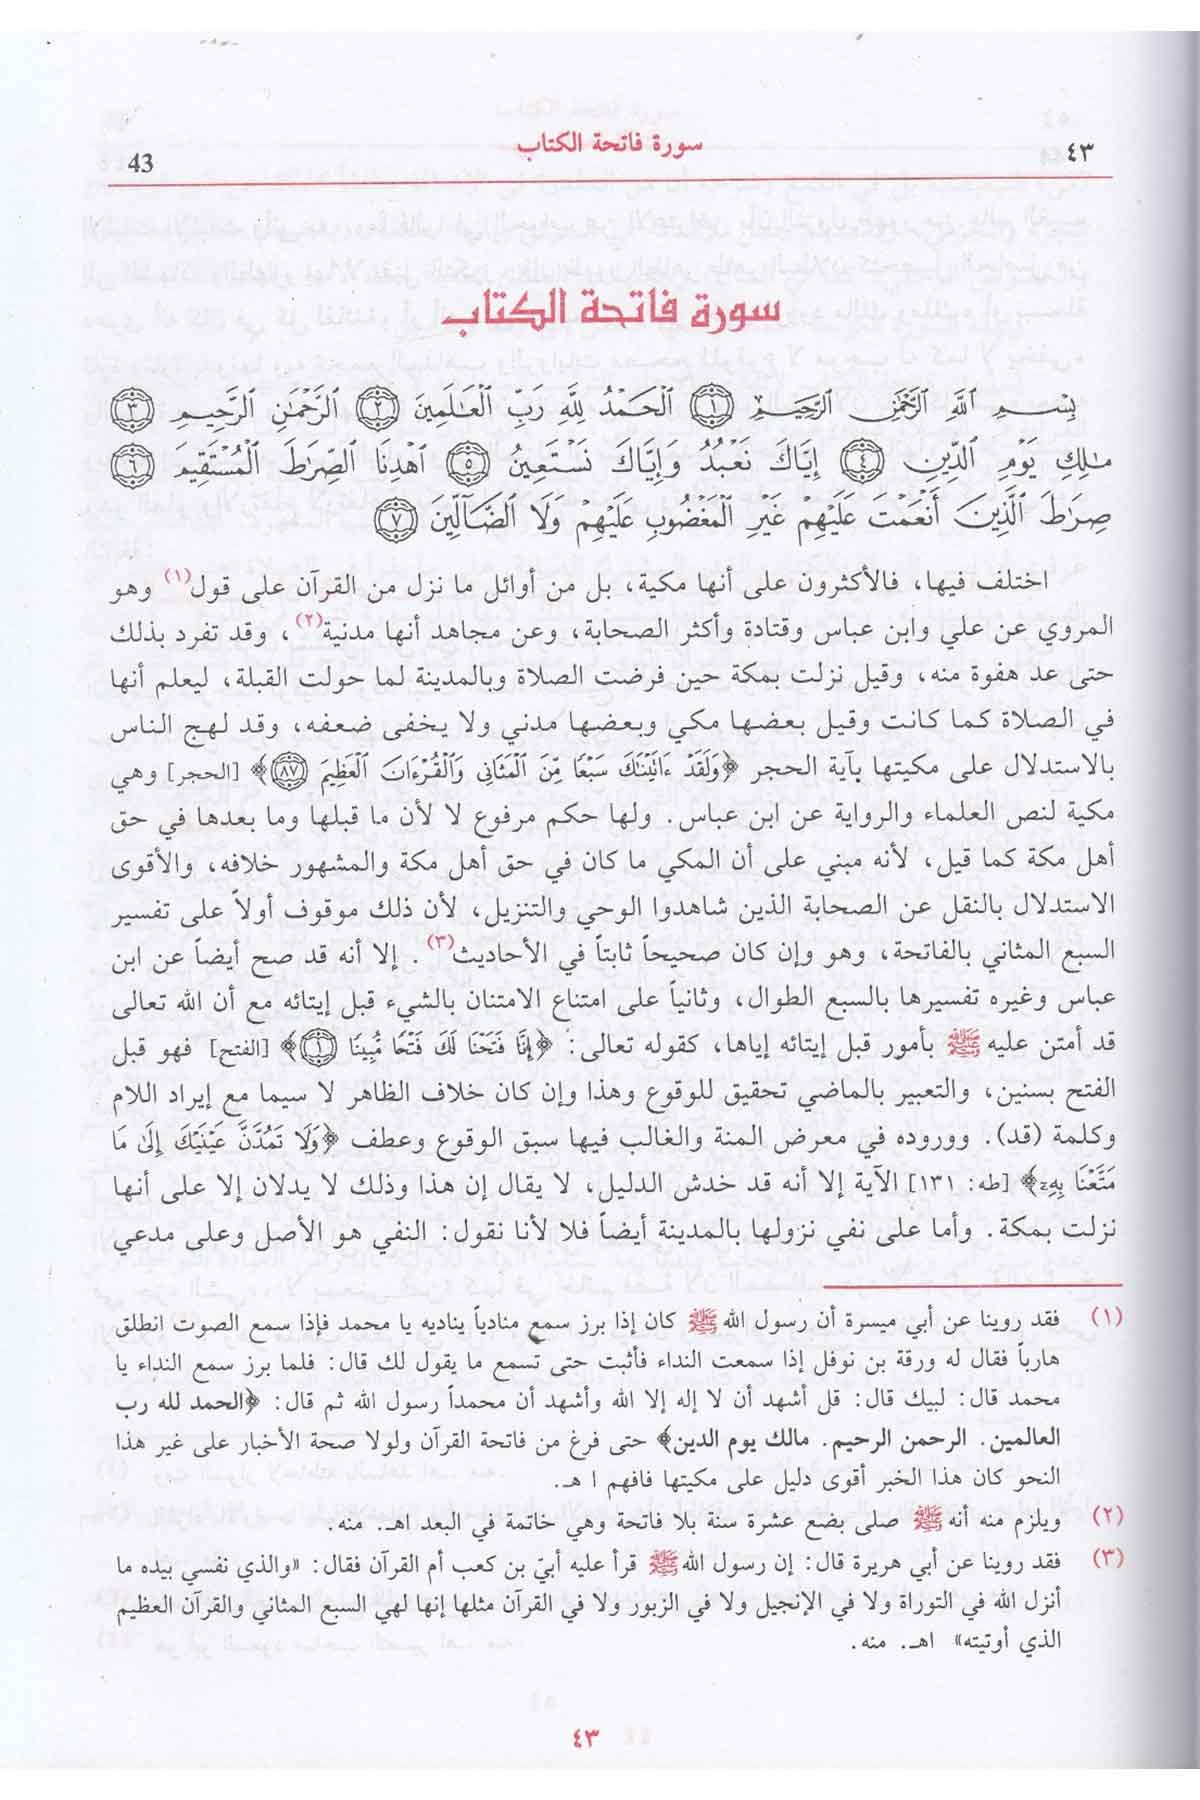 ٤٣ سورة فاتحة الكتاب 43
سورة فاتحة الكتاب
بِسْمِ اللَّهِ الرَّحْمَٰنِ الرَّحِيمِ ١ الْحَمْدُ لِلَّهِ رَبِّ الْعَالَمِينَ ٢ الرَّحْمَٰنِ الرَّحِيمِ ٣
مَالِكِ يَوْمِ الدِّينِ ٤ إِيَّاكَ نَعْبُدُ وَإِيَّاكَ نَسْتَعِينُ ٥ اهْدِنَا الصِّرَاطَ الْمُسْتَقِيمَ ٦
صِرَاطَ الَّذِينَ أَنْعَمْتَ عَلَيْهِمْ غَيْرِ الْمَغْضُوبِ عَلَيْهِمْ وَلَا الضَّالِّينَ ٧
اختلف فيها، فالأكثرون على أنها مكية، بل من أوائل ما نزل من القرآن على قول(١) وهو
المروي عن علي وابن عباس وقتادة وأكثر الصحابة، وعن مجاهد أنها مدنية(٢)، وقد تفرد بذلك
حتى عد هفوة منه، وقيل نزلت بمكة حين فرضت الصلاة وبالمدينة لما حولت القبلة، ليعلم أنها
في الصلاة كما كانت وقيل بعضها مكي وبعضها مدني ولا يخفى ضعفه، وقد لهج الناس
بالاستدلال على مكيتها بآية الحجر ﴿وَلَقَدْ ءَاتَيْنَاكَ سَبْعًا مِّنَ الْمَثَانِي وَالْقُرْءَانَ الْعَظِيمَ ٨٧﴾ [الحجر] وهي
مكية لنص العلماء والرواية عن ابن عباس. ولها حكم مرفوع لا لأن ما قبلها وما بعدها في حق
أهل مكة كما قيل، لأنه مبني على أن المكي ما كان في حق أهل مكة والمشهور خلافه، والأقوى
الاستدلال بالنقل عن الصحابة الذين شاهدوا الوحي والتنزيل، لأن ذلك موقوف أولاً على تفسير
السبع المثاني بالفاتحة، وهو وإن كان صحيحاً ثابتاً في الأحاديث(٣). إلا أنه قد صح أيضاً عن ابن
عباس وغيره تفسيرها بالسبع الطوال، وثانياً على امتناع الامتنان بالشيء قبل إيتائه مع أن الله تعالى
قد أمتن عليه ﷺ بأمور قبل إيتائه إياها، كقوله تعالى: ﴿إِنَّا فَتَحْنَا لَكَ فَتْحًا مُّبِينًا ١﴾ [الفتح] فهو قبل
الفتح بسنين، والتعبير بالماضي تحقيق للوقوع وهذا وإن كان خلاف الظاهر لا سيما مع إيراد اللام
وكلمة (قد). ووروده في معرض المنة والغالب فيها سبق الوقوع وعطف ﴿وَلَا تَمُدَّنَّ عَيْنَيْكَ إِلَىٰ مَا
مَتَّعْنَا بِهِۦ﴾ [طه: ١٣١] الآية إلا أنه قد خدش الدليل، لا يقال إن هذا وذلك لا يدلان إلا على أنها
نزلت بمكة. وأما على نفي نزولها بالمدينة أيضاً فلا لأنا نقول: النفي هو الأصل وعلى مدعي
(١) فقد روينا عن أبي ميسرة أن رسول الله ﷺ كان إذا برز سمع منادياً يناديه يا محمد فإذا سمع الصوت انطلق
هارباً فقال له ورقة بن نوفل إذا سمعت النداء فأثبت حتى تسمع ما يقول لك قال: فلما برز سمع النداء يا
محمد قال: لبيك قال: قل أشهد أن لا إله إلا الله وأشهد أن محمداً رسول الله ثم قال: ﴿الحمد لله رب
العالمين. الرحمن الرحيم. مالك يوم الدين﴾ حتى فرغ من فاتحة القرآن ولولا صحة الأخبار على غير هذا
النحو كان هذا الخبر أقوى دليل على مكيتها فافهم ا هـ.
(٢) ويلزم منه أنه ﷺ صلى بضع عشرة سنة بلا فاتحة وهي خاتمة في البعد اهـ. منه.
(٣) فقد روينا عن أبي هريرة قال: إن رسول الله ﷺ قرأ عليه أبيّ بن كعب أم القرآن فقال: «والذي نفسي بيده ما
أنزل الله في التوراة ولا في الإنجيل ولا في الزبور ولا في القرآن مثلها إنها لهي السبع المثاني والقرآن العظيم
الذي أوتيته» اهـ. منه.
٤٣